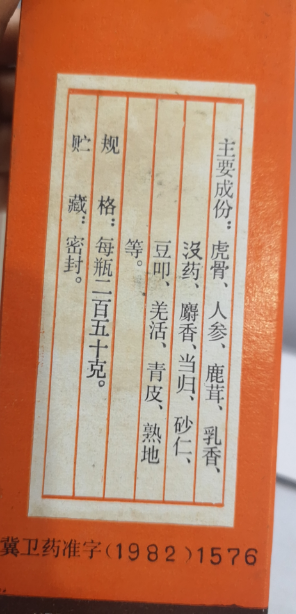 主要成份：虎骨、人参、鹿茸、乳香、
没药、麝香、当归、砂仁、
豆叩、羌活、青皮、熟地
等。
规格：每瓶二百五十克。
贮藏：密封。
冀卫药准字(1982)1576